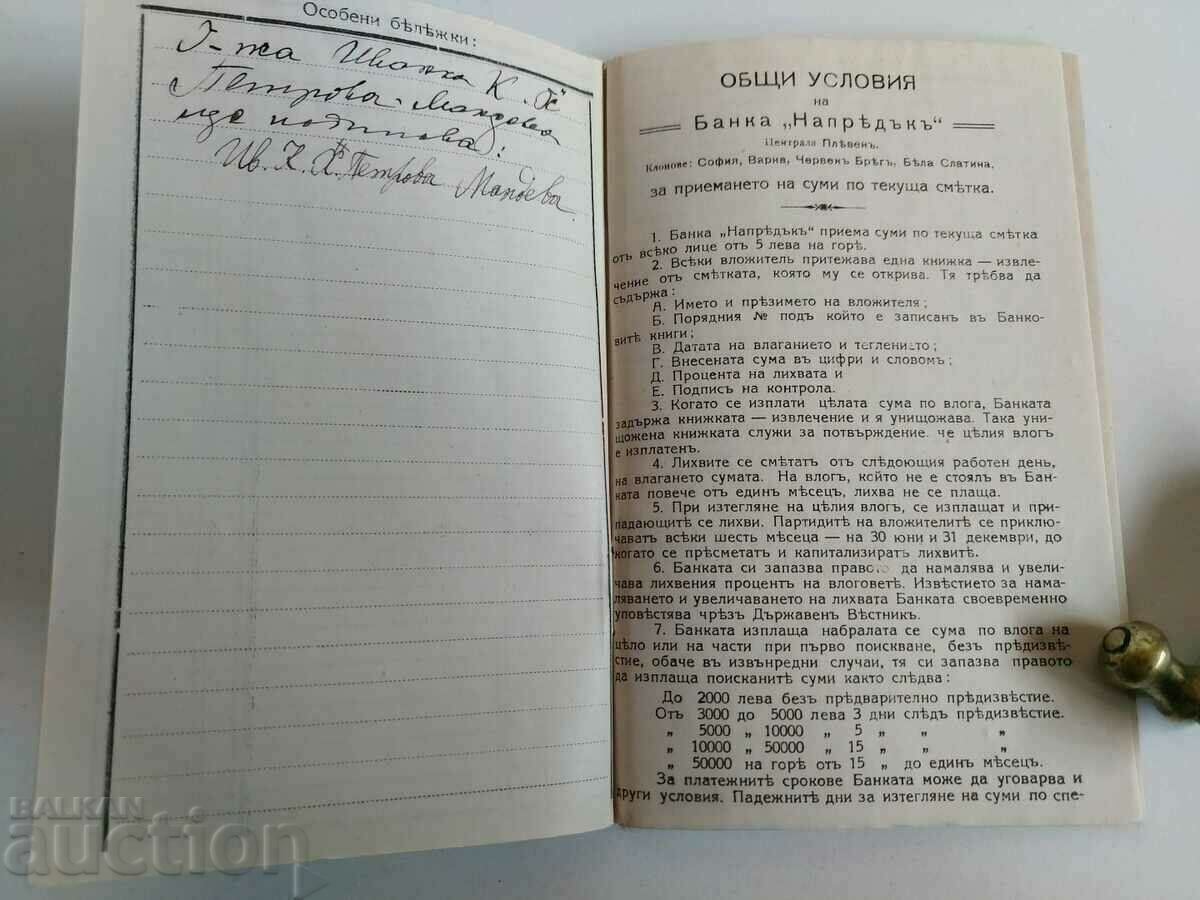 Особени бѣлѣжки:
Г-жа Иванка К. Х"
Петрова-Мандова
ще подписва:
Ив. К. Х" Петрова Мандова
ОБЩИ УСЛОВИЯ
на
Банка „Напрѣдъкъ“
Централа Плѣвенъ.
Клонове: София, Варна, Червенъ Брѣгъ, Бѣла Слатина,
за приемането на суми по текуща смѣтка.
1. Банка „Напрѣдъкъ“ приема суми по текуща смѣтка
отъ всѣко лице отъ 5 лева на горѣ.
2. Всѣки вложитель притежава една книжка — извле-
чение отъ смѣтката, която му се открива. Тя трѣбва да
съдържа:
А. Името и прѣзимето на вложителя;
Б. Порядния № подъ който е записанъ въ Банко-
витѣ книги;
В. Датата на влагането и тегленето;
Г. Внесената сума въ цифри и словомъ;
Д. Процента на лихвата и
Е. Подписъ на контрола.
3. Когато се изплати цѣлата сума по влога, Банката
задържа книжката — извлечение и я унищожава. Така уни-
щожена книжката служи за потвърждение. че цѣлия влогъ
е изплатенъ.
4. Лихвите се смѣтатъ отъ слѣдющия работен день,
на влагането сумата. На влогъ, който не е стоялъ въ Бан-
ката повече отъ единъ мѣсецъ, лихва не се плаща.
5. При изтегляне на цѣлия влогъ, се изплащат и при-
падающитѣ се лихви. Партидитѣ на вложителитѣ се приклю-
чаватъ всѣки шесть мѣсеца — на 30 юни и 31 декември, до
когато се прѣсметатъ и капитализиратъ лихвитѣ.
6. Банката си запазва правото да намалява и увели-
чава лихвения процентъ на влоговетѣ. Извѣстието за нама-
ляването и увеличаването на лихвата Банката своевременно
уповѣстява чрѣзъ Държавенъ Вѣстникъ.
7. Банката изплаща набралата се сума по влога на
цѣло или на части при първо поискване, безъ прѣдизвѣ-
стие, обаче въ извънредни случаи, тя си запазва правото
да изплаща поисканитѣ суми както слѣдва:
До 2000 лева безъ прѣдварително прѣдизвѣстие.
Отъ 3000 до 5000 лева 3 дни слѣдъ прѣдизвѣстие.
„ 5000 „ 10000 „ 5 „ „ „
„ 10000 „ 50000 „ 15 „ „ „
„ 50000 на горѣ отъ 15 „ до единъ мѣсецъ.
За платежнитѣ срокове Банката може да уговарва и
други условия. Падежнитѣ дни за изтегляне на суми по спе-
BALKAN
auction